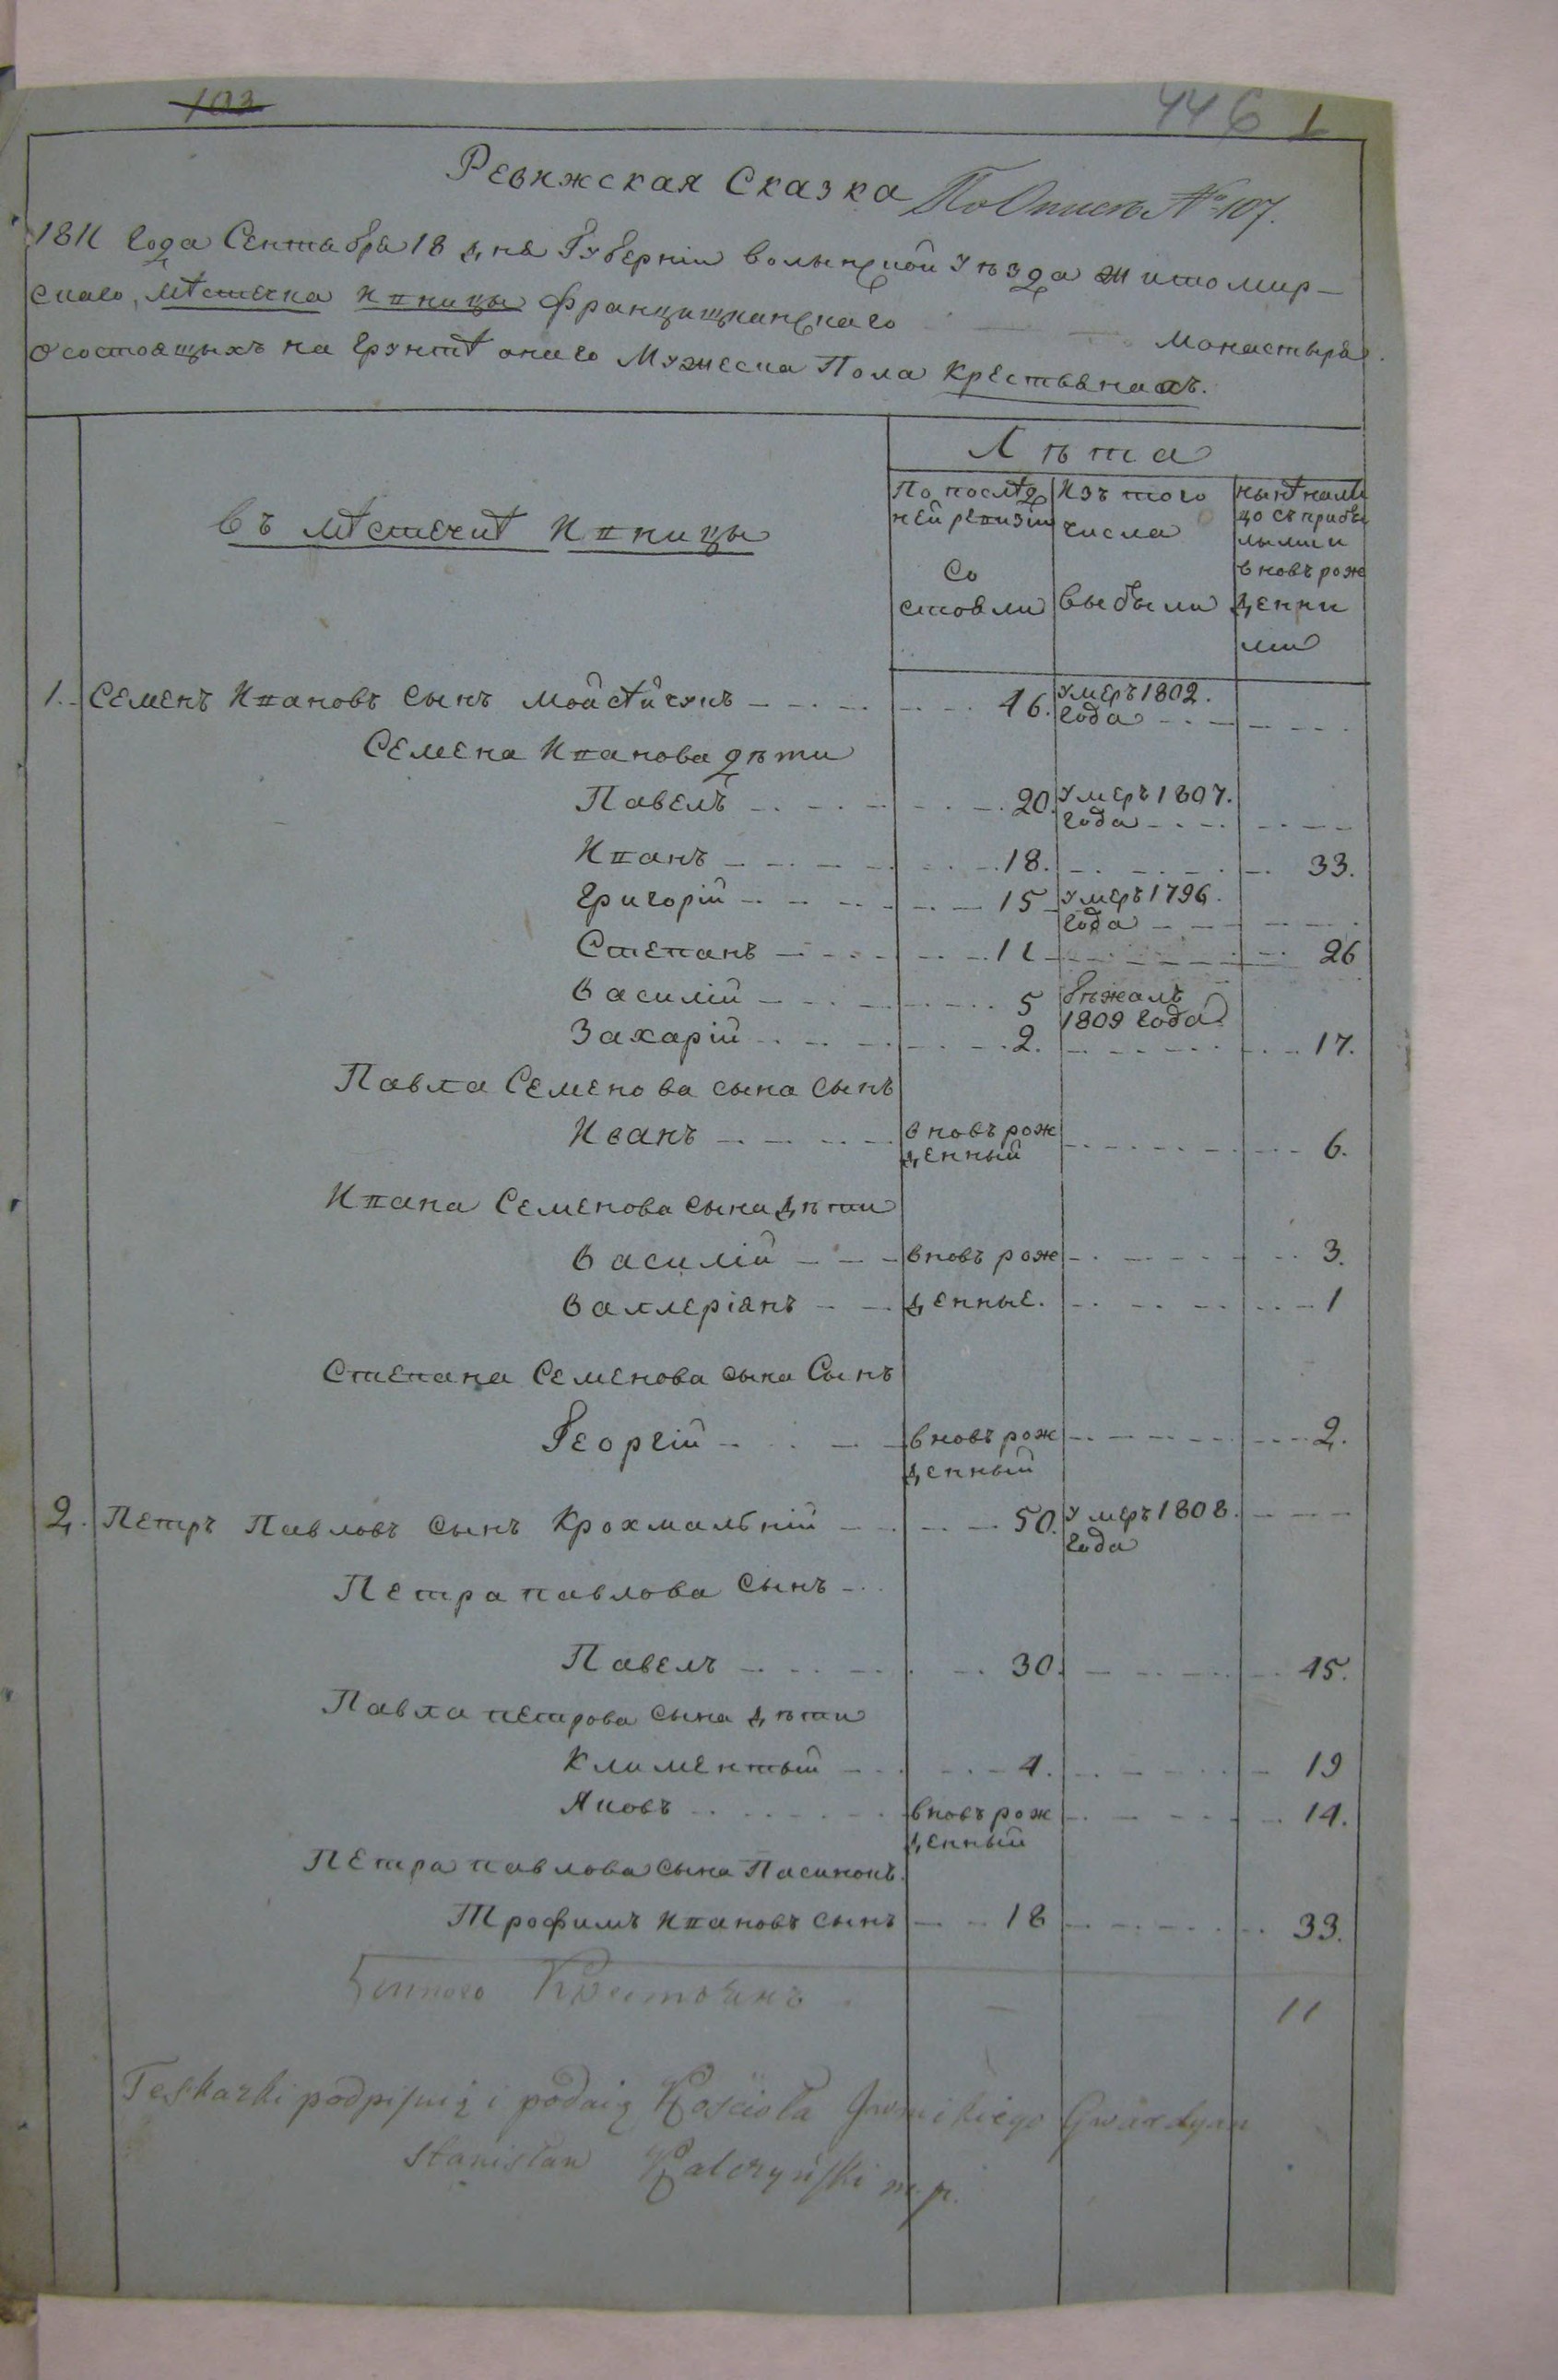 103
446 1
Ревижская Сказка По Описѣ № 107.
1811 Года Сентября 18 дня Губерніи Волынской Уѣзда Житомир-
скаго, мѣстечка Ивницы Францишканскаго Монастыря.
О состоящыхъ на Грунтѣ онаго Мужеска Пола Крестьянахъ.
Лѣта
Въ мѣстечкѣ Ивницы
По послѣд
ней ревизіи
Со
стояли
Изъ того
числа
выбыли
нынѣ нали
цо съ прибы
лыми и
вновь рож
денни
ми
1. Семенъ Ивановъ сынъ Мойсѣйчукъ 46. Умеръ 1802. Года
Семена Иванова дѣти
Павелъ 20. Умеръ 1807. Года
Иванъ 18. 33.
Григорій 15 Умеръ 1796. Года
Степанъ 11 26
Василій 5 Бѣжалъ 1809 Года
Захарій 2. 17.
Павла Семенова сына сынъ
Иванъ вновь рож денный 6.
Ивана Семенова сына дѣти
Василій вновь рож 3.
Валлеріянъ денные. 1
Степана Семенова сына Сынъ
Георгій вновь рож денный 2.
2. Петръ Павловъ сынъ Крохмальній 50. Умеръ 1808. Года
Петра павлова Сынъ
Павелъ 30. 45.
Павла петрова Сына дѣти
Климентый 4. 19
Яковъ вновь рож денный 14.
Петра павлова сына Пасинокъ.
Трофимъ Ивановъ сынъ 18 33.
Итого Крестьянъ 11
Te skazki podpisuię i podaię Kościoła Iwnickiego Gwardyan
Stanisław Kalczyński m.p.